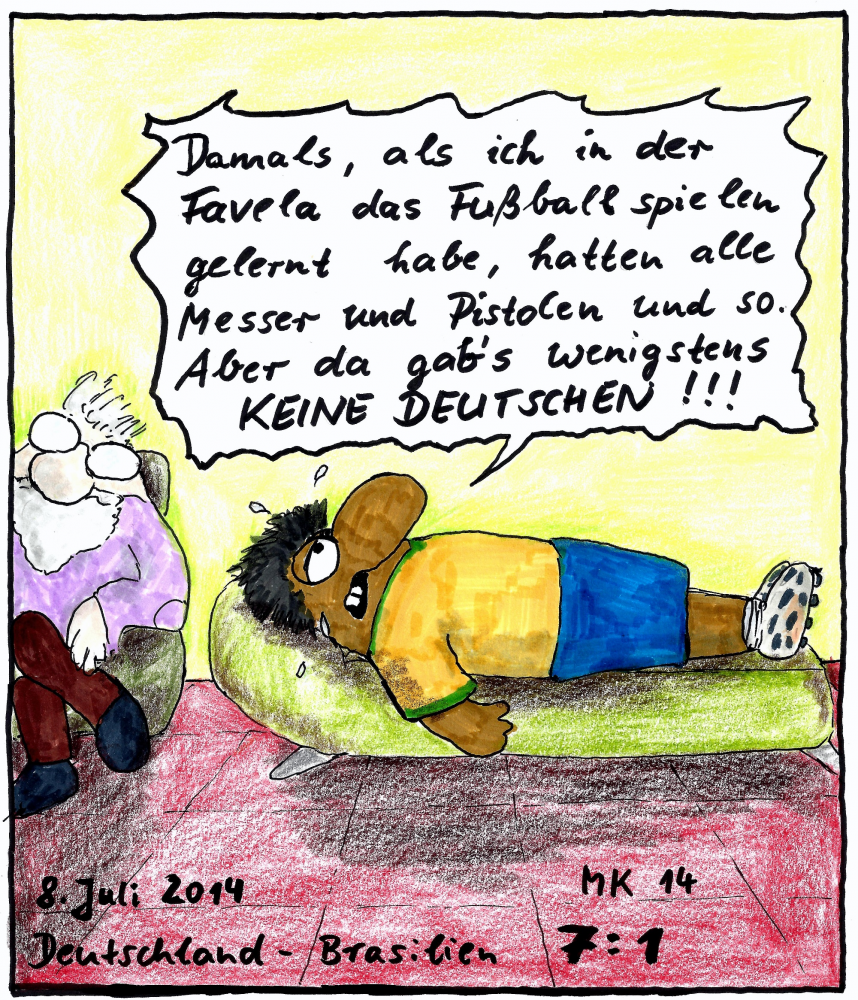 Damals, als ich in der
Favela das Fußball spielen
gelernt habe, hatten alle
Messer und Pistolen und so.
Aber da gab's wenigstens
KEINE DEUTSCHEN !!!
8. Juli 2014
MK 14
Deutschland - Brasilien 7:1